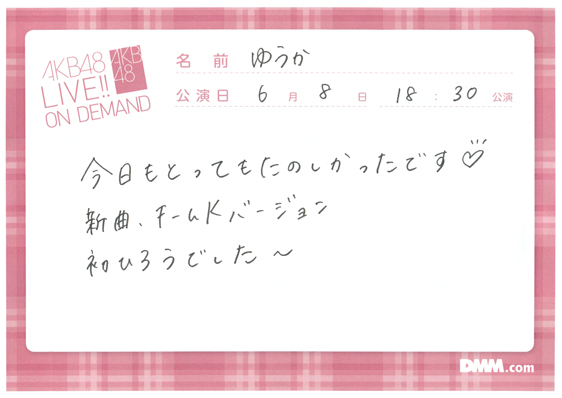 AKB48
LIVE!!
ON DEMAND
AKB
48
名前 ゆうか
公演日 6月8日 18:30公演
今日もとってもたのしかったです♡
新曲、チームKバージョン
初ひろうでした〜
DMM.com